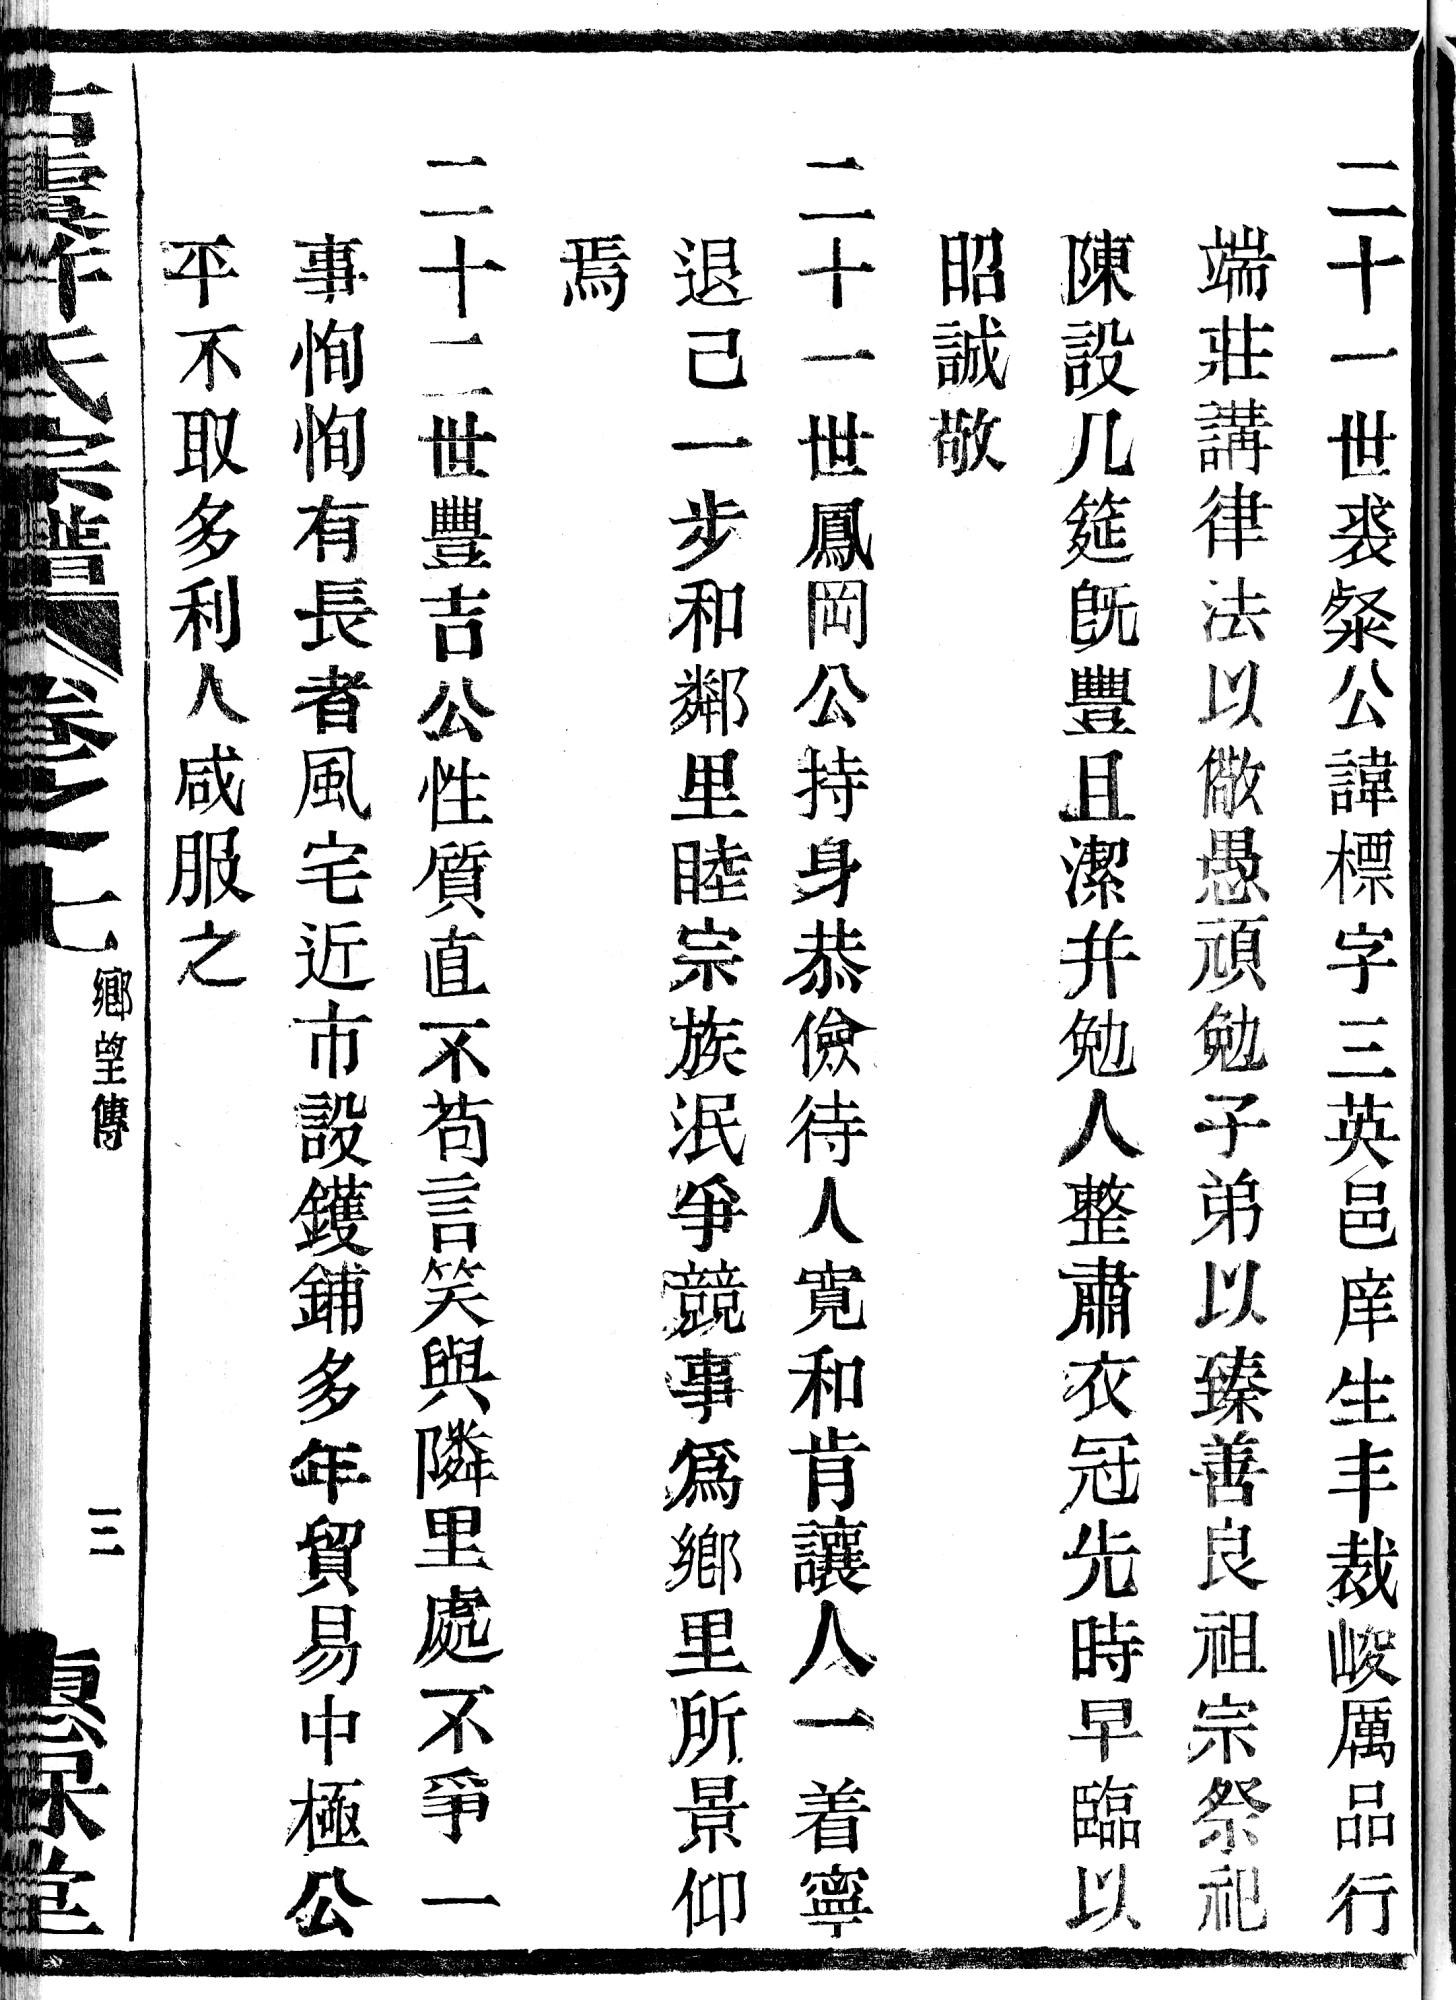 二十一世裘粲公諱標字三英邑庠生丰裁峻厲品行
端莊講律法以儆愚頑勉子弟以臻善良祖宗祭祀
陳設几筵旣豐且潔幷勉人整肅衣冠先時早臨以
昭誠敬
二十一世鳳岡公持身恭儉待人寬和肯讓人一着寧
退己一步和鄰里睦宗族泯爭競事爲鄉里所景仰
焉
二十二世豐吉公性質直不苟言笑與隣里處不爭一
事恂恂有長者風宅近市設鑊鋪多年貿易中極公
平不取多利人咸服之
氏宗譜
卷之七
鄉望傳
三
惠保堂